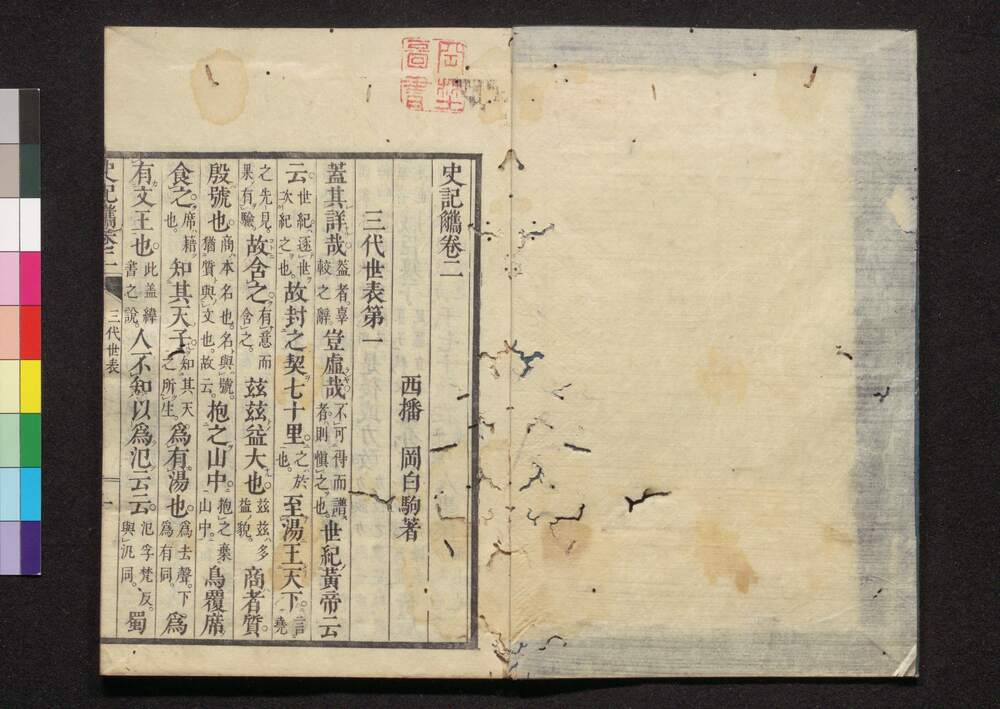 岡埜
圖書
史記觿卷二
三代世表第一
西播 岡白駒著
蓋其詳哉蓋者辜較之辭豈虛哉不可得而譜者則愼之也世紀黃帝云
云世紀逐世次紀之也故封之契七十里之於也至湯王天下言堯
之先見果有驗故含之有意而含之玆玆益大也玆玆多益貌商者質
殷號也商本名也名與號猶質與文也故云抱之山中抱之棄山中鳥覆席
食之席藉也知其天子知其天之所生爲有湯也爲去聲下爲有同爲
有文王也此蓋緯書之說人不知以爲氾云云氾孚梵反與汎同蜀
史記觿卷二 三代世表 一